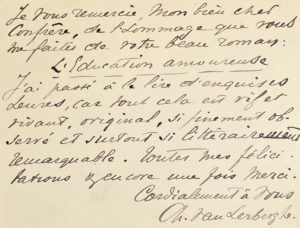 Je vous remercie, mon bien cher
Confrère, de l'hommage que vous
me faites de votre beau roman:
L'Education amoureuse
J'ai passé à le lire d'exquises
heures, car tout cela est vif et
vivant, original, si finement ob-
servé et surtout si littérairement
remarquable. Toutes mes félici-
tations & encore une fois merci.
Cordialement à vous
Ch. Van Lerberghe.